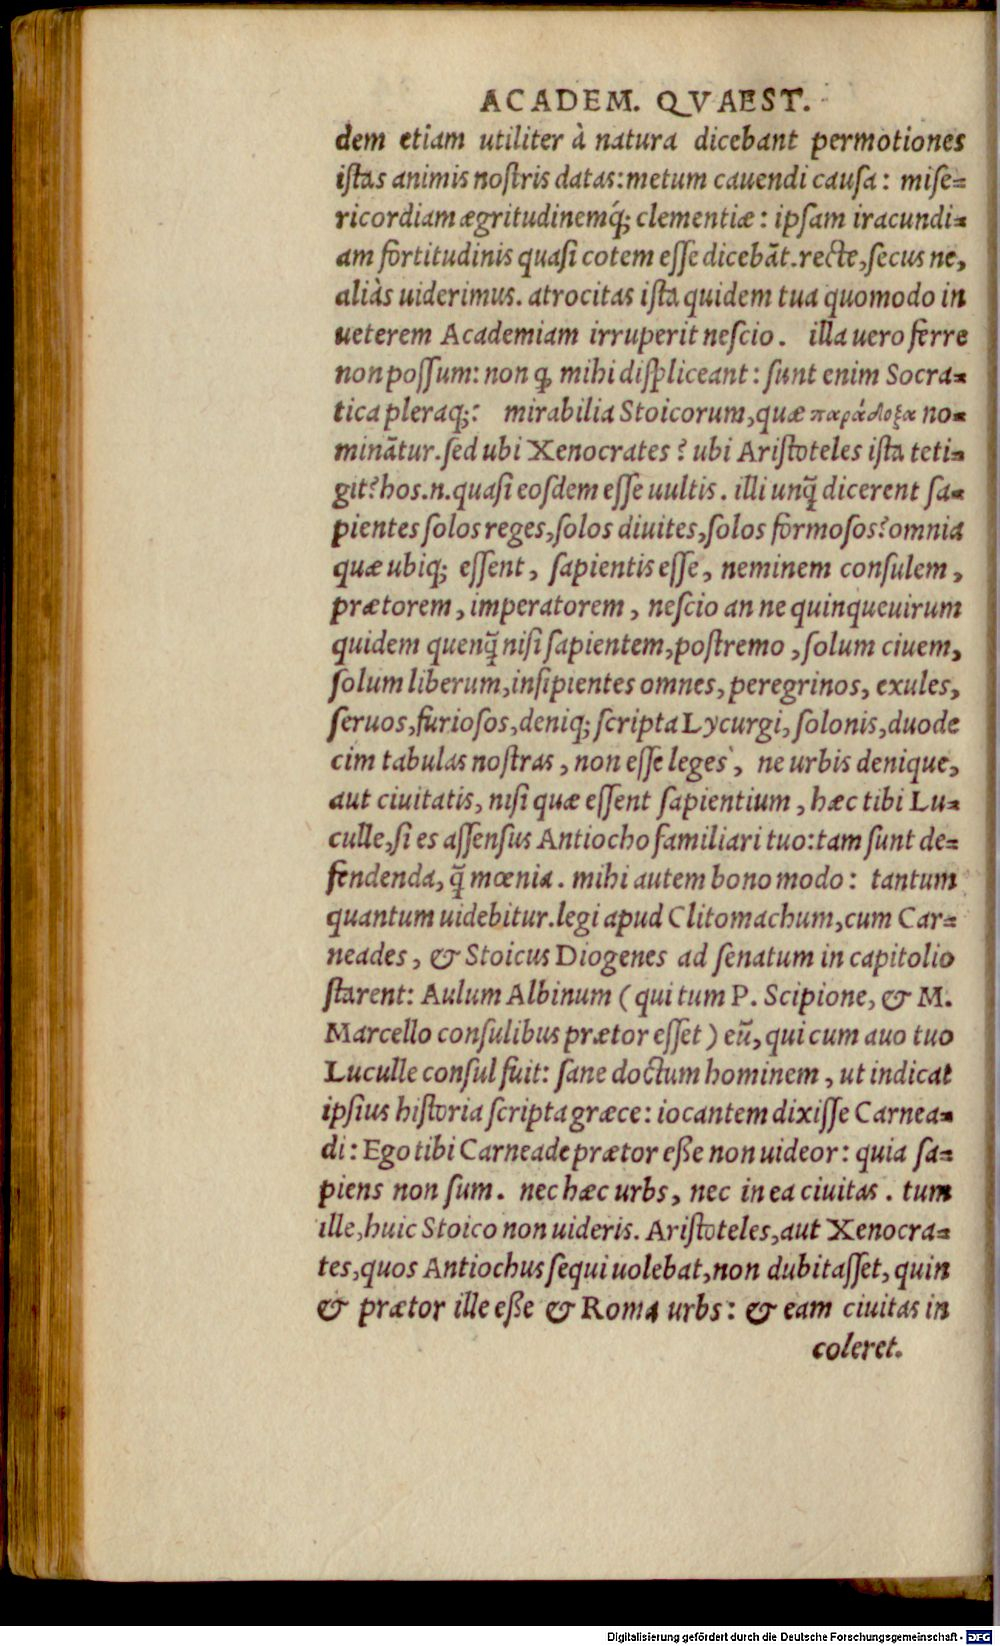 ACADEM. QVAEST.
dem etiam utiliter à natura dicebant permotiones
iſtas animis noſtris datas: metum cauendi cauſa: miſe=
ricordiam ægritudinemq́; clementiæ: ipſam iracundi=
am fortitudinis quaſi cotem eſſe dicebãt. recte, ſecus ne,
aliàs uiderimus. atrocitas iſta quidem tua quomodo in
ueterem Academiam irruperit neſcio. illa uero ferre
non poſſum: non ꝙ mihi diſpliceant: ſunt enim Socra=
tica pleraq;: mirabilia Stoicorum, quæ παράδοξα no=
minãtur. ſed ubi Xenocrates? ubi Ariſtoteles iſta teti=
git? hos .n. quaſi eoſdem eſſe uultis. illi unq̃ dicerent ſa=
pientes ſolos reges, ſolos diuites, ſolos formoſos? omnia
quæ ubiq; eſſent, ſapientis eſſe, neminem conſulem,
prætorem, imperatorem, neſcio an ne quinqueuirum
quidem quenq̃ niſi ſapientem, poſtremo, ſolum ciuem,
ſolum liberum, inſipientes omnes, peregrinos, exules,
ſeruos, furioſos, deniq; ſcripta Lycurgi, ſolonis, duode
cim tabulas noſtras, non eſſe leges, ne urbis denique,
aut ciuitatis, niſi quæ eſſent ſapientium, hæc tibi Lu=
culle, ſi es aſſenſus Antiocho familiari tuo: tam ſunt de=
fendenda, q̃ mœnia. mihi autem bono modo: tantum
quantum uidebitur. legi apud Clitomachum, cum Car=
neades, & Stoicus Diogenes ad ſenatum in capitolio
ſtarent: Aulum Albinum (qui tum P. Scipione, & M.
Marcello conſulibus prætor eſſet) eũ, qui cum auo tuo
Luculle conſul fuit: ſane doctum hominem, ut indicat
ipſius hiſtoria ſcripta græce: iocantem dixiſſe Carnea=
di: Ego tibi Carneade prætor eße non uideor: quia ſa=
piens non ſum. nec hæc urbs, nec in ea ciuitas. tum
ille, huic Stoico non uideris. Ariſtoteles, aut Xenocra=
tes, quos Antiochus ſequi uolebat, non dubitaſſet, quin
& prætor ille eße & Roma urbs: & eam ciuitas in
coleret.
Digitalisierung gefördert durch die Deutsche Forschungsgemeinschaft - DFG